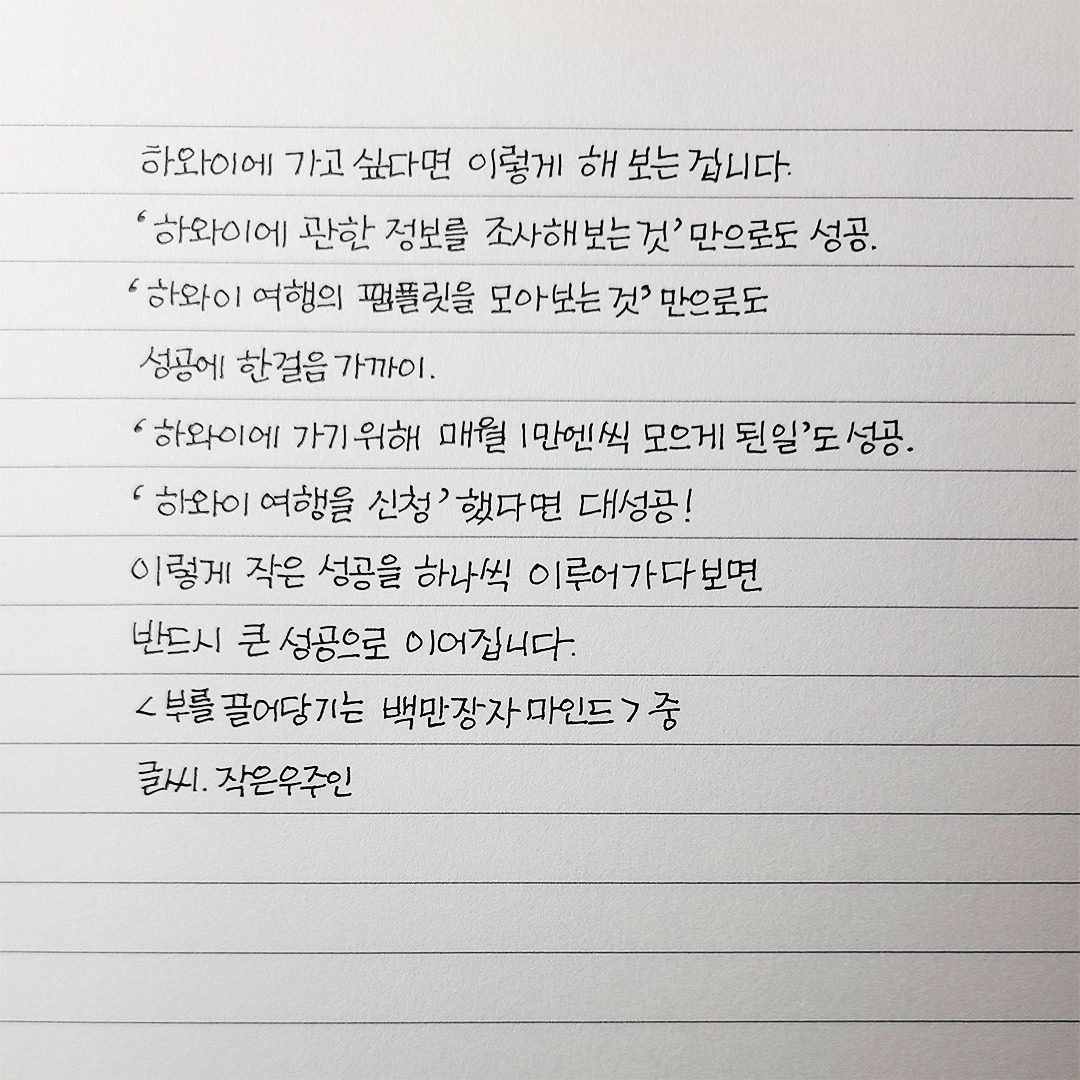 하와이에 가고 싶다면 이렇게 해 보는 겁니다.
‘하와이에 관한 정보를 조사해보는 것’ 만으로도 성공.
‘하와이 여행의 팸플릿을 모아보는 것’ 만으로도
성공에 한걸음 가까이.
‘하와이에 가기위해 매월 1만엔씩 모으게 된일’도 성공.
‘하와이 여행을 신청’ 했다면 대성공!
이렇게 작은 성공을 하나씩 이루어가다보면
반드시 큰 성공으로 이어집니다.
<부를 끌어당기는 백만장자 마인드> 중
글씨. 작은우주인